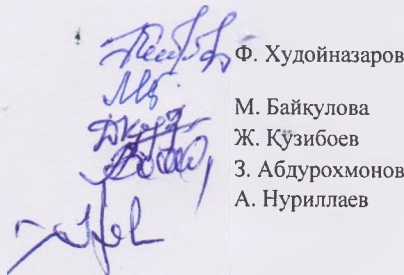 Ф. Худойназаров
М. Байкулова
Ж. Қузибоев
З. Абдурохмонов
А. Нуриллаев